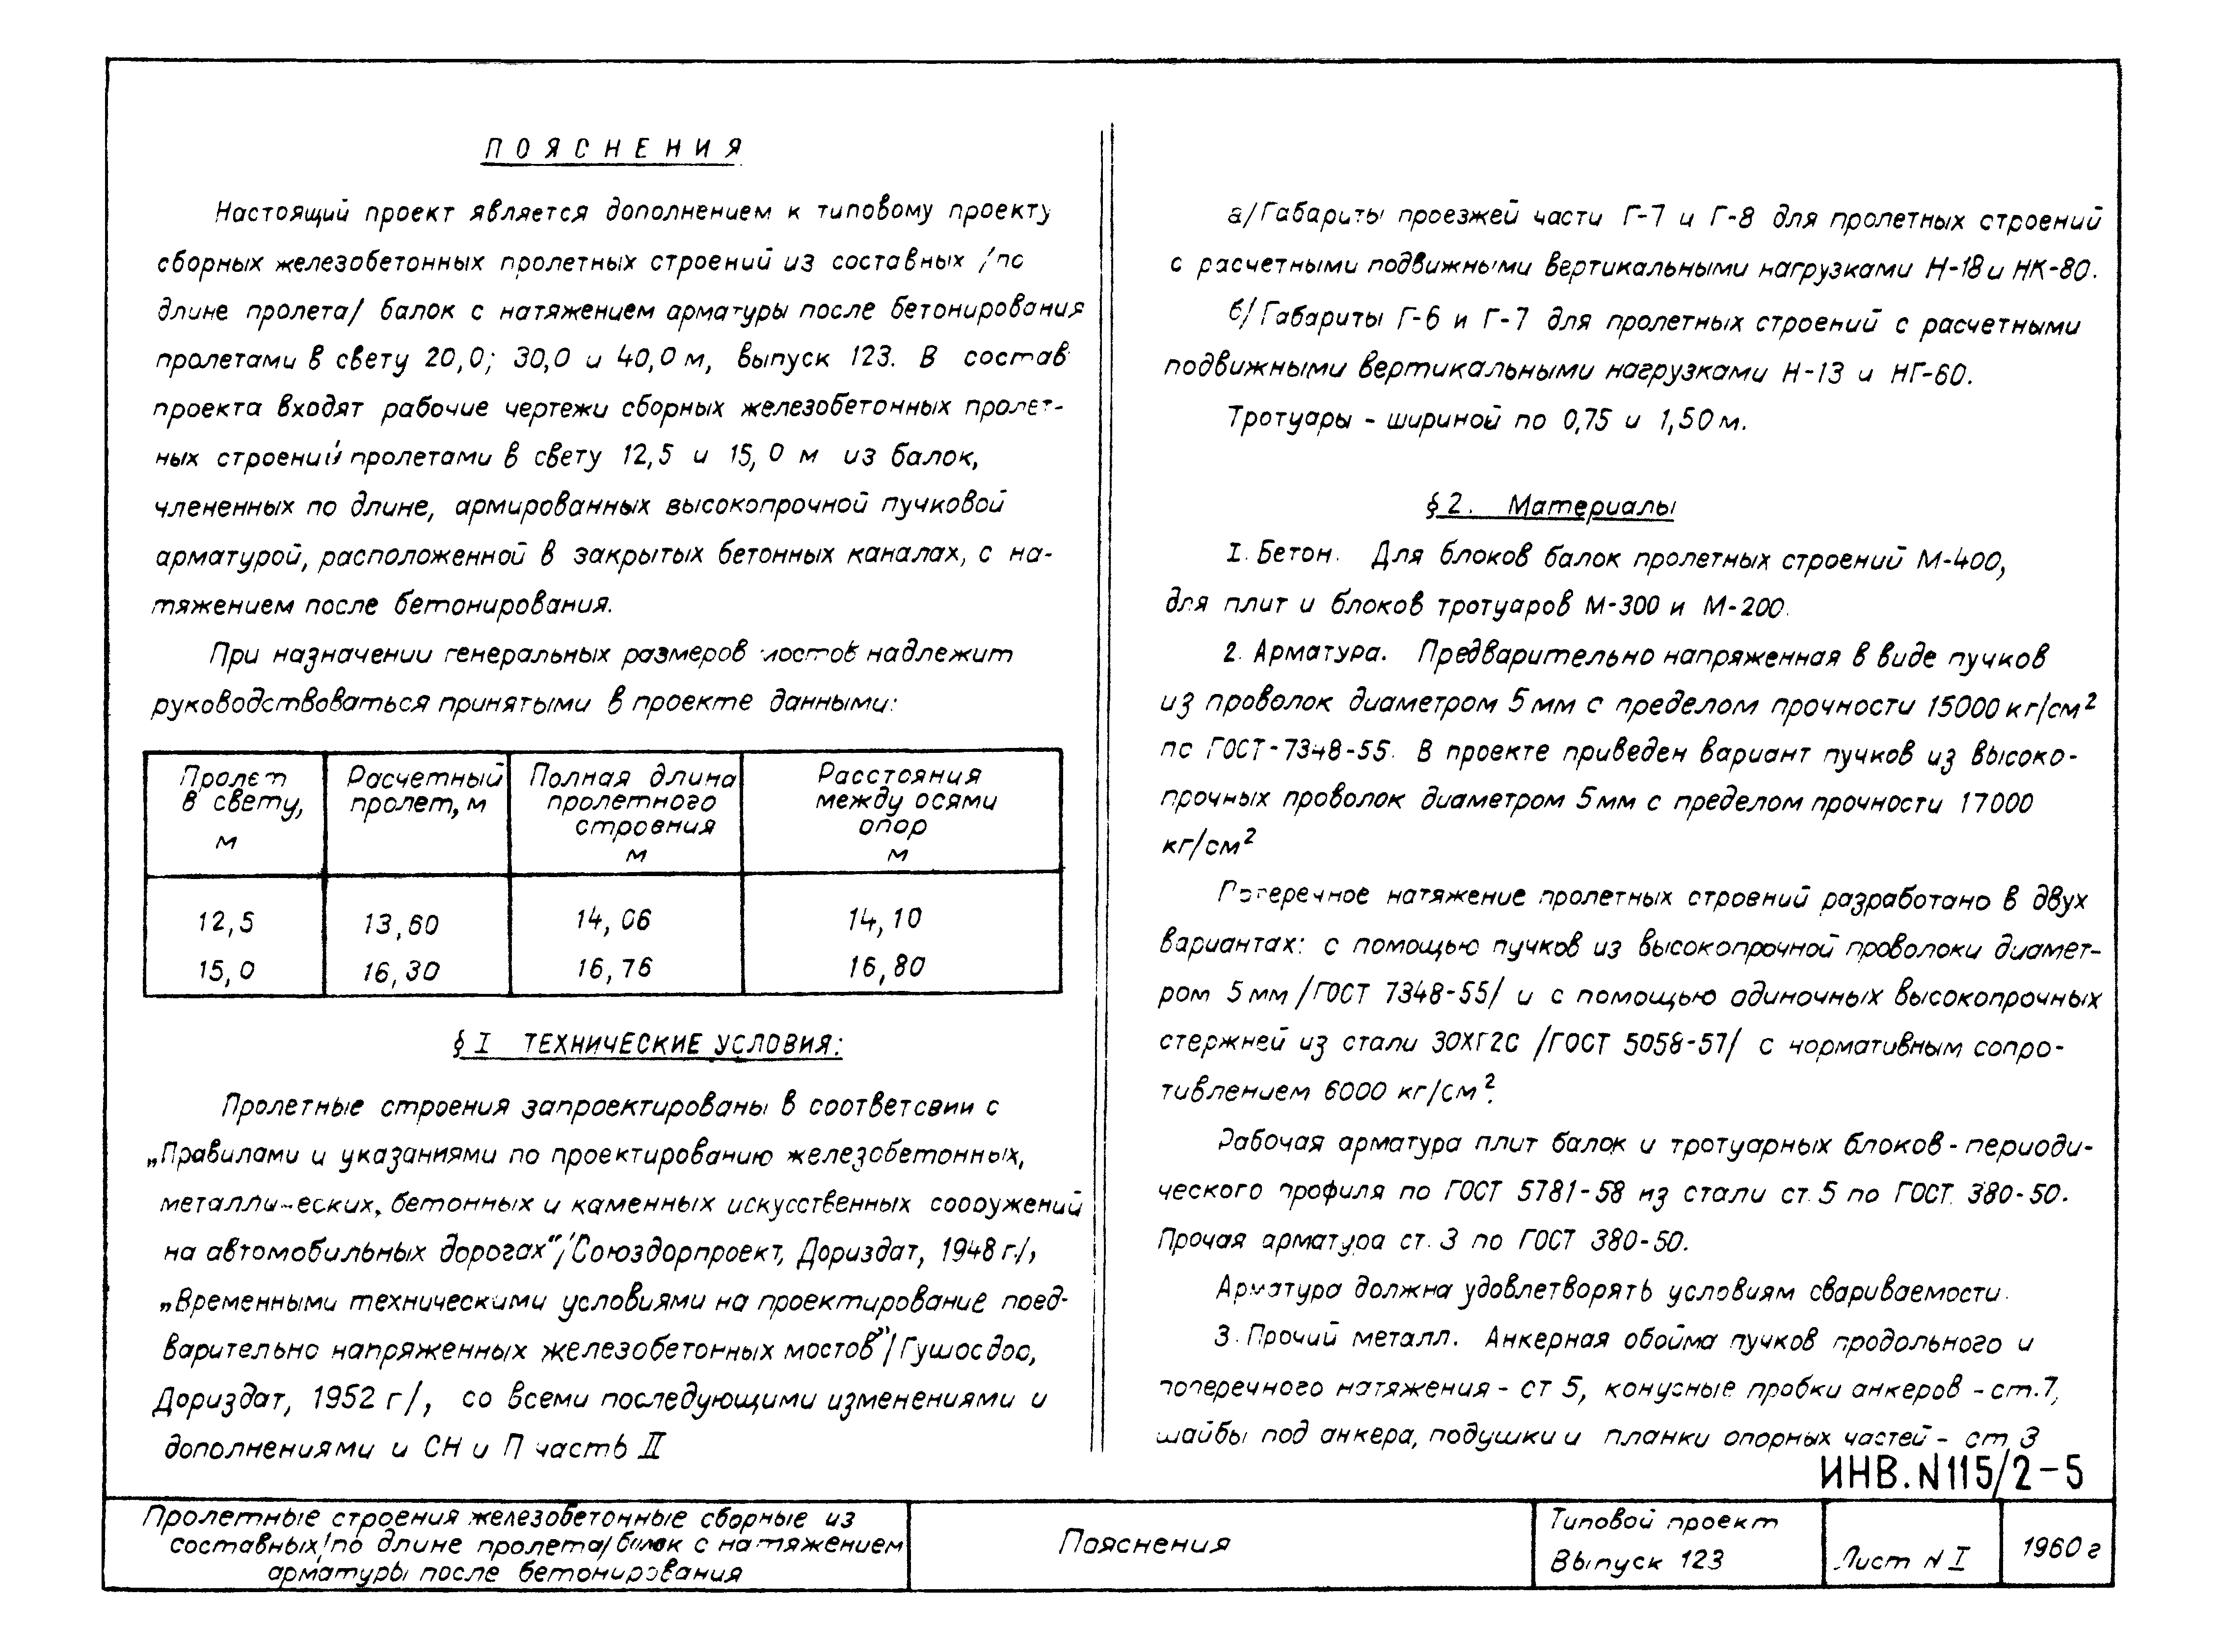 ПОЯСНЕНИЯ
Настоящий проект является дополнением к типовому проекту
сборных железобетонных пролетных строений из составных /по
длине пролета/ балок с натяжением арматуры после бетонирования
пролетами в свету 20,0; 30,0 и 40,0 м, выпуск 123. В состав
проекта входят рабочие чертежи сборных железобетонных пролет-
ных строений пролетами в свету 12,5 и 15,0 м из балок,
члененных по длине, армированных высокопрочной пучковой
арматурой, расположенной в закрытых бетонных каналах, с на-
тяжением после бетонирования.
При назначении генеральных размеров мостов надлежит
руководствоваться принятыми в проекте данными:
Пролет в свету, м | Расчетный пролет, м | Полная длина пролетного строения м | Расстояния между осями опор м
12,5 | 13,60 | 14,06 | 14,10
15,0 | 16,30 | 16,76 | 16,80
§ I ТЕХНИЧЕСКИЕ УСЛОВИЯ:
Пролетные строения запроектированы в соответсвии с
„Правилами и указаниями по проектированию железобетонных,
металлических, бетонных и каменных искусственных сооружений
на автомобильных дорогах"/Союздорпроект, Дориздат, 1948 г./,
„Временными техническими условиями на проектирование пред-
варительно напряженных железобетонных мостов"/Гушосдор,
Дориздат, 1952 г/, со всеми последующими изменениями и
дополнениями и СН и П часть II
а/Габариты проезжей части Г-7 и Г-8 для пролетных строений
с расчетными подвижными вертикальными нагрузками Н-18 и НК-80.
б/Габариты Г-6 и Г-7 для пролетных строений с расчетными
подвижными вертикальными нагрузками Н-13 и НГ-60.
Тротуары - шириной по 0,75 и 1,50 м.
§ 2. Материалы
I. Бетон. Для блоков балок пролетных строений М-400,
для плит и блоков тротуаров М-300 и М-200.
2. Арматура. Предварительно напряженная в виде пучков
из проволок диаметром 5 мм с пределом прочности 15000 кг/см²
по ГОСТ-7348-55. В проекте приведен вариант пучков из высоко-
прочных проволок диаметром 5 мм с пределом прочности 17000
кг/см²
Поперечное натяжение пролетных строений разработано в двух
вариантах: с помощью пучков из высокопрочной проволоки диамет-
ром 5 мм /ГОСТ 7348-55/ и с помощью одиночных высокопрочных
стержней из стали 30ХГ2С /ГОСТ 5058-57/ с нормативным сопро-
тивлением 6000 кг/см².
Рабочая арматура плит балок и тротуарных блоков - периоди-
ческого профиля по ГОСТ 5781-58 из стали ст. 5 по ГОСТ 380-50.
Прочая арматура ст. 3 по ГОСТ 380-50.
Арматура должна удовлетворять условиям свариваемости.
3. Прочий металл. Анкерная обойма пучков продольного и
поперечного натяжения - ст 5, конусные пробки анкеров - ст. 7,
шайбы под анкера, подушки и планки опорных частей - ст 3
ИНВ. N 115/2-5
Пролетные строения железобетонные сборные из
составных/по длине пролета/балок с натяжением
арматуры после бетонирования
Пояснения
Типовой проект
Выпуск 123
Лист N I
1960 г